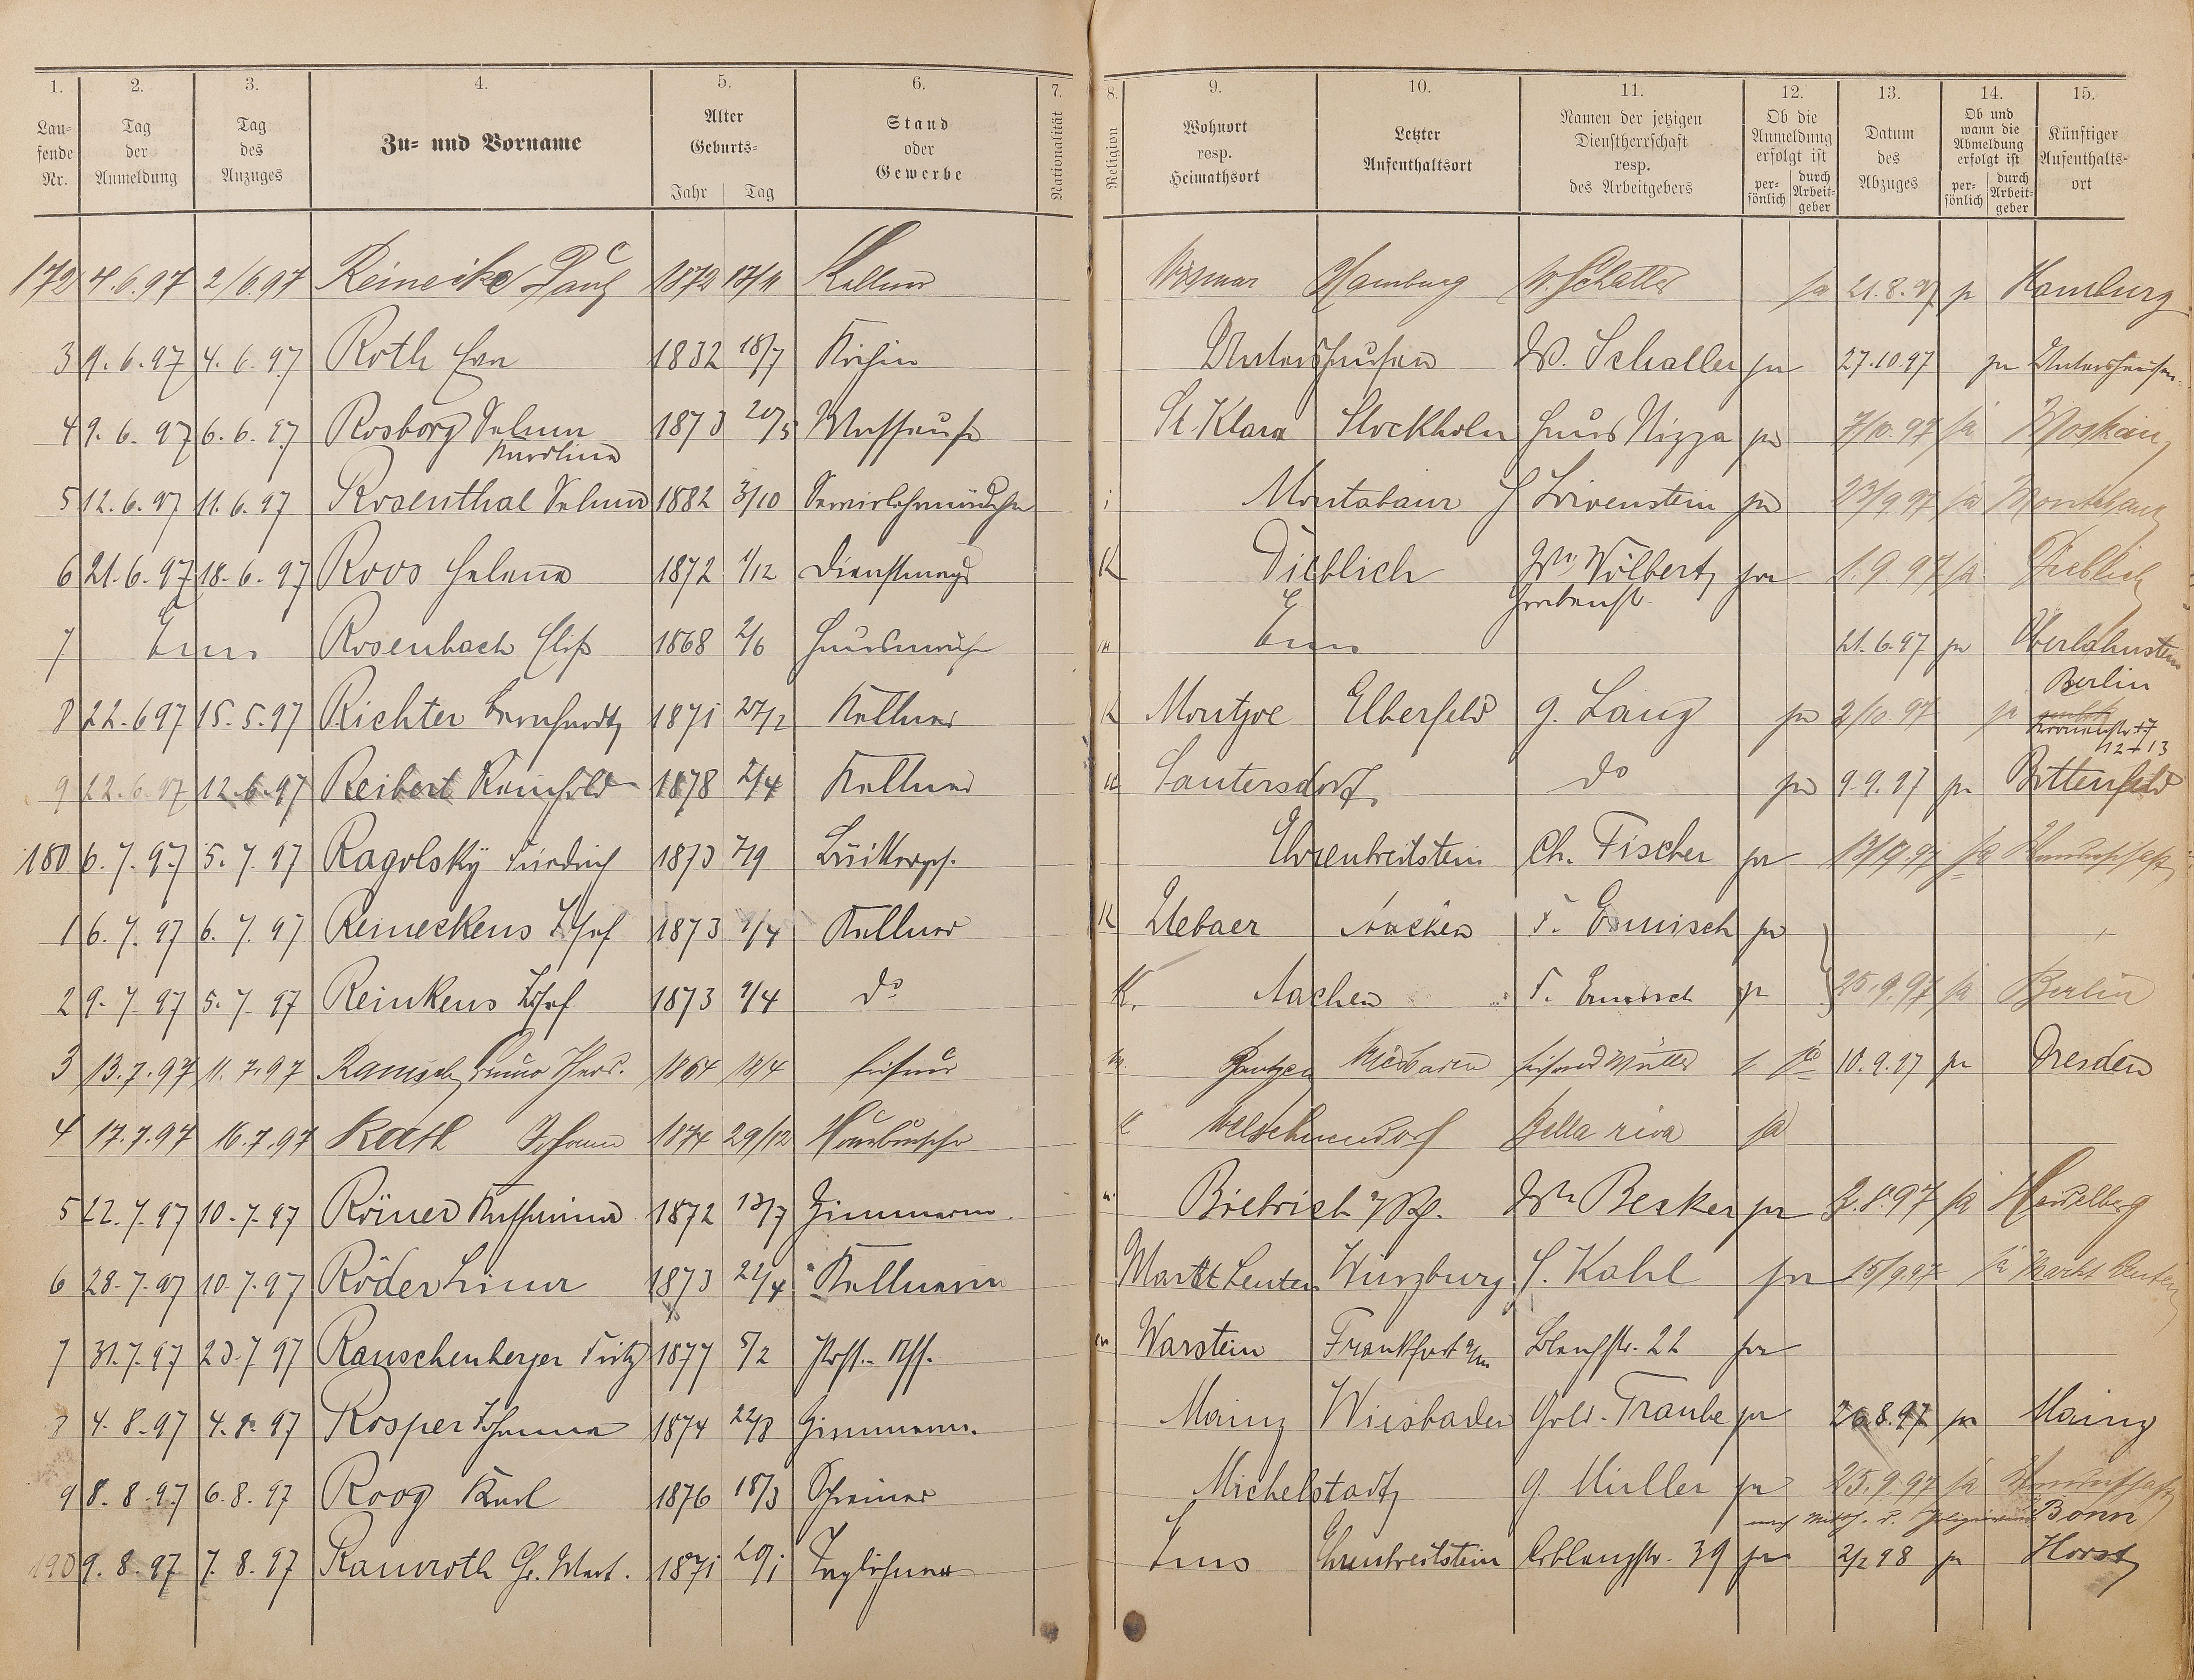 1.
2.
3.
4.
5.
6.
7.
8.
9.
10.
11.
12.
13.
14.
15.
Lau-
fende
Nr.
Tag
der
Anmeldung
Tag
des
Anzuges
Zu- und Vorname
Alter
Geburts-
Jahr | Tag
Stand
oder
Gewerbe
Nationalität
Religion
Wohnort
resp.
Heimathsort
Letzter
Aufenthaltsort
Namen der jetzigen
Dienstherrschaft
resp.
des Arbeitgebers
Ob die
Anmeldung
erfolgt ist
per-
sönlich
durch
Arbeit-
geber
Datum
des
Abzuges
Ob und
wann die
Abmeldung
erfolgt ist
per-
sönlich
durch
Arbeit-
geber
Künftiger
Aufenthalts-
ort
172 4.6.97 2/6.97 Reinecke Paul 1872 Kellner Wismar Hamburg W. Schaller ja 21.8.97 ja Hamburg
3 9.6.97 4.6.97 Roth Eva 1832 18/7 Köchin Untershausen W. Schaller ja 27.10.97 ja Untershausen
4 9.6.97 6.6.97 Rosborg Selma 1873 20/5 St. Klara Stockholm Haus Nizza ja 7/10.97 ja Moskau
Karolina
5 12.6.97 11.6.97 Rosenthal Selma 1882 3/10 i Montabaur Löwenstein ja 23/9 97 ja Montabaur
6 21.6.97 18.6.97 Roos Helena 1872 1/12 Dienstmagd K Dieblich Wwe Wilbert ja 1.9.97 ja Dieblich
Grabenstr.
7 Ems Rosenbach Elis 1868 2/6 Ems 21.6.97 ja Oberlahnstein
8 22.6 97 15.5.97 Richter Bernhardt 1871 27/2 Kellner K Montjoe Elberfeld G. Lang ja 2/10.97 ja Berlin
12+13
9 22.6.97 12.6.97 Reibert Reinhold 1878 2/4 Kellner Lautersdorf do ja 9.9.97 ja Bittenfeld
180 6.7.97 5.7.97 Ragolsky Friedrich 1873 7/9 Ehrenbreitstein Ch. Fischer ja 13/9.97 ja Wanderschaft
1 6.7.97 6.7.97 Reineckens Josef 1873 9/4 Kellner K Aachen F. Ermisch ja
2 9.7.97 5.7.97 Reinkens Josef 1873 9/4 do K. Aachen F. Ermisch ja 25.9.97 ja Berlin
3 13.7.97 11.7.97 Bruno Theod. 1864 18/4 Friseur Wiesbaden Friseur Müller 10.9.97 ja Dresden
4 17.7.97 16.7.97 Rath Johann 1874 29/12 Hausbursche Welschneudorf Bella riva ja
5 22.7.97 10.7.97 Römer Katharina 1872 13/7 Zimmerm. Biebrich a/Rh. Wwe Becker ja 2.8.97 ja Heidelberg
6 28.7.97 10.7.97 Röder Lina 1873 22/4 Kellnerin Markt Leuten Würzburg Kahl ja 15/9.97 ja Markt Leuten
7 31.7.97 23.7 97 Rauschenberger Fritz 1877 5/2 Post.-Ass. Warstein Frankfurt a/M 22 ja
8 4.8.97 4.8.97 Rosper Johanna 1874 22/8 Zimmerm. Mainz Wiesbaden Gold. Traube ja 26.8.97 ja Mainz
9 8.8.97 6.8.97 Roog Karl 1876 18/3 Schreiner Michelstadt G. Müller ja 25.9.97 ja Wanderschaft
nach Mitth. d. Bonn
190 9.8.97 7.8.97 Ramroth 1871 20/1 Taglöhner Ems Ehrenbreitstein Coblenzstr. 39 ja 2/2 98 ja Horst